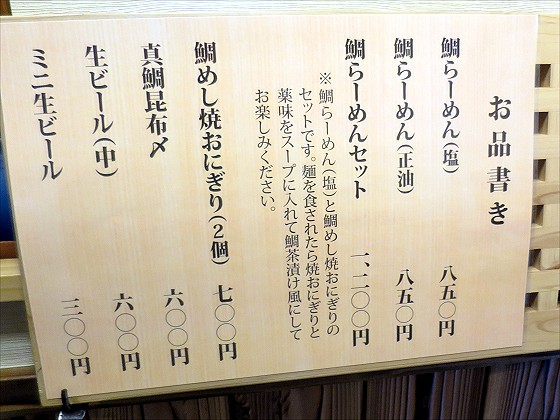 お品書き
鯛らーめん(塩) 八五〇円
鯛らーめん(正油) 八五〇円
鯛らーめんセット 一、二〇〇円
※鯛らーめん(塩)と鯛めし焼おにぎりの
セットです。麺を食されたら焼おにぎりと
薬味をスープに入れて鯛茶漬け風にして
お楽しみください。
鯛めし焼おにぎり(2個) 七〇〇円
真鯛昆布〆 六〇〇円
生ビール(中) 六〇〇円
ミニ生ビール 三〇〇円